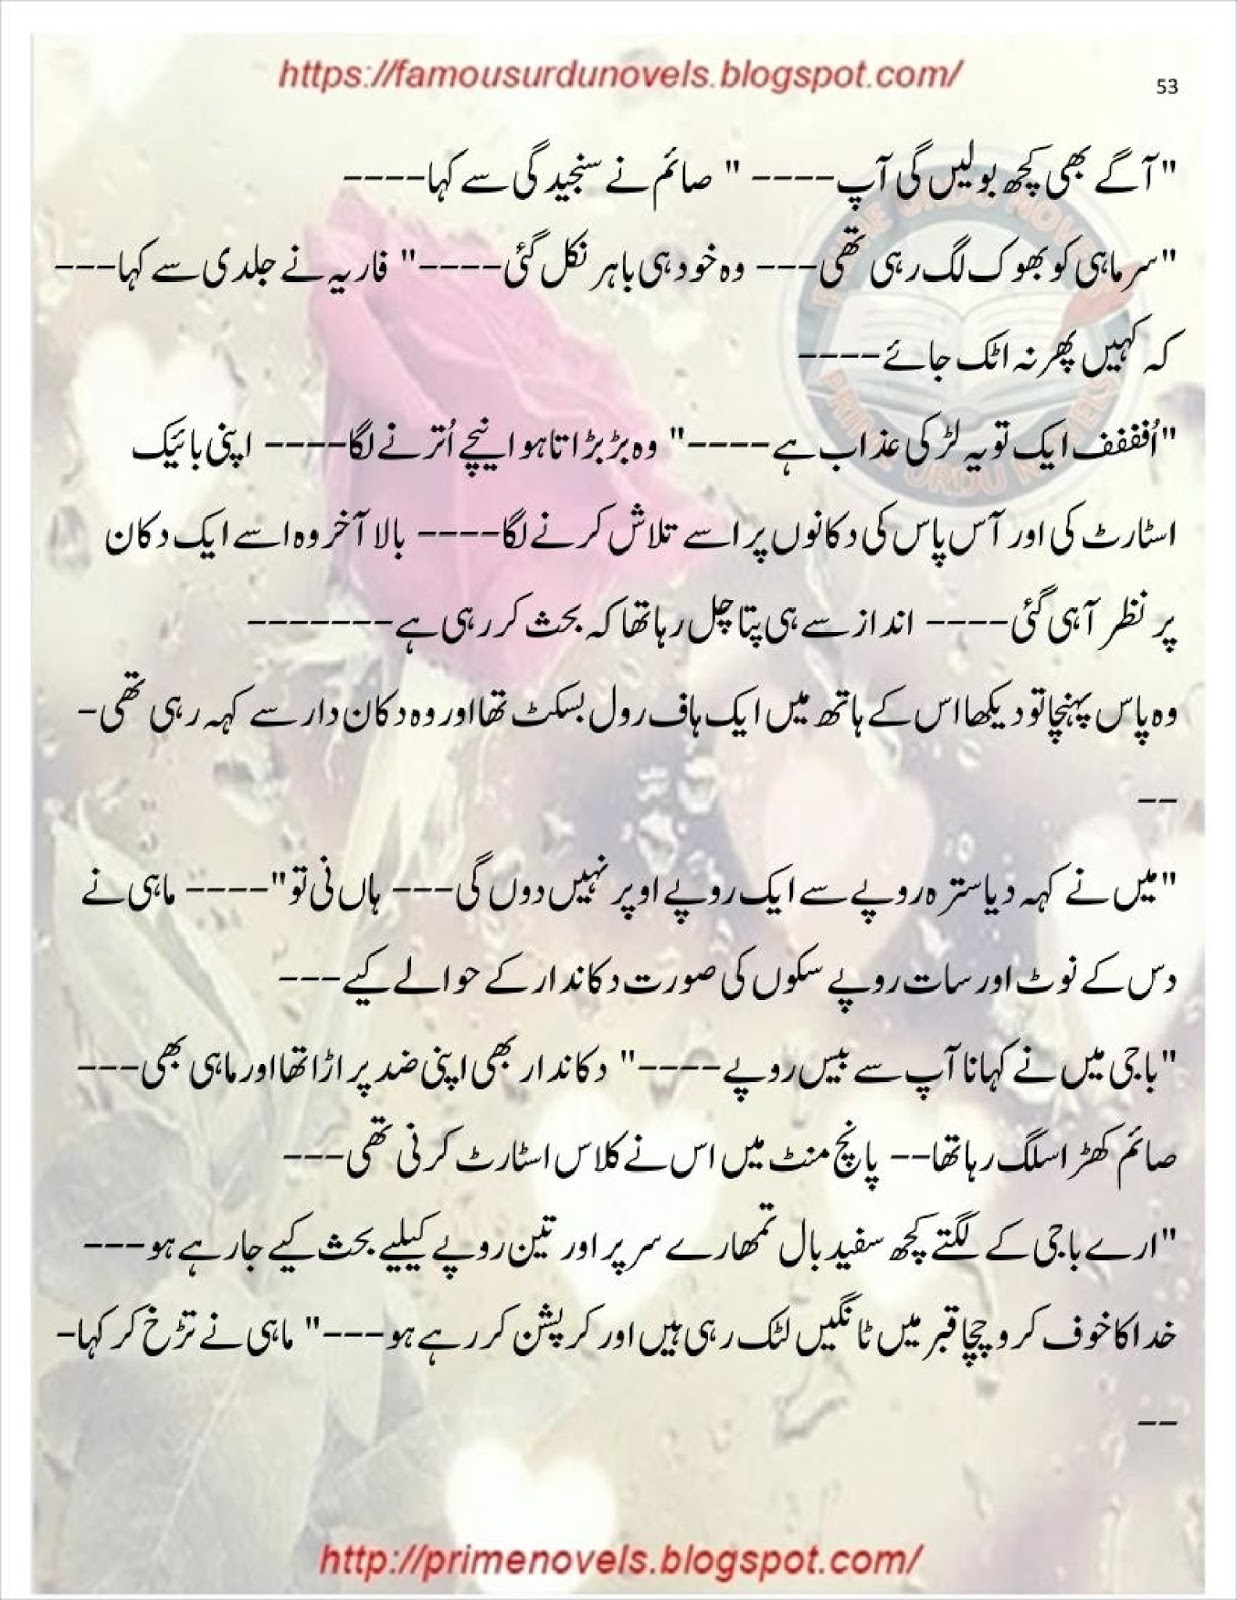 https://famousurdunovels.blogspot.com/
53
"آگے بھی کچھ بولیں گی آپ----" صائم نے سنجیدگی سے کہا----
"سر ماہی کو بھوک لگ رہی تھی--- وہ خود ہی باہر نکل گئی----" فاریہ نے جلدی سے کہا---
کہ کہیں پھر نہ اٹک جائے----
"اُفففف ایک تو یہ لڑکی عذاب ہے----" وہ بڑبڑاتا ہوا نیچے اُترنے لگا---- اپنی بائیک
اسٹارٹ کی اور آس پاس کی دکانوں پر اسے تلاش کرنے لگا---- بالا آخر وہ اسے ایک دکان
پر نظر آ ہی گئی---- انداز سے ہی پتا چل رہا تھا کہ بحث کر رہی ہے-------
وہ پاس پہنچا تو دیکھا اس کے ہاتھ میں ایک ہاف رول بسکٹ تھا اور وہ دکان دار سے کہہ رہی تھی-
--
"میں نے کہہ دیا سترہ روپے سے ایک روپے اوپر نہیں دوں گی--- ہاں نی تو"---- ماہی نے
دس کے نوٹ اور سات روپے سکوں کی صورت دکاندار کے حوالے کیے---
"باجی میں نے کہا نا آپ سے بیس روپے----" دکاندار بھی اپنی ضد پر اڑا تھا اور ماہی بھی---
صائم کھڑا سلگ رہا تھا-- پانچ منٹ میں اس نے کلاس اسٹارٹ کرنی تھی---
"ارے باجی کے لگتے کچھ سفید بال تمھارے سر پر اور تین روپے کیلیے بحث کیے جا رہے ہو---
خدا کا خوف کرو چچا قبر میں ٹانگیں لٹک رہی ہیں اور کرپشن کر رہے ہو---" ماہی نے تڑخ کر کہا-
--
http://primenovels.blogspot.com/